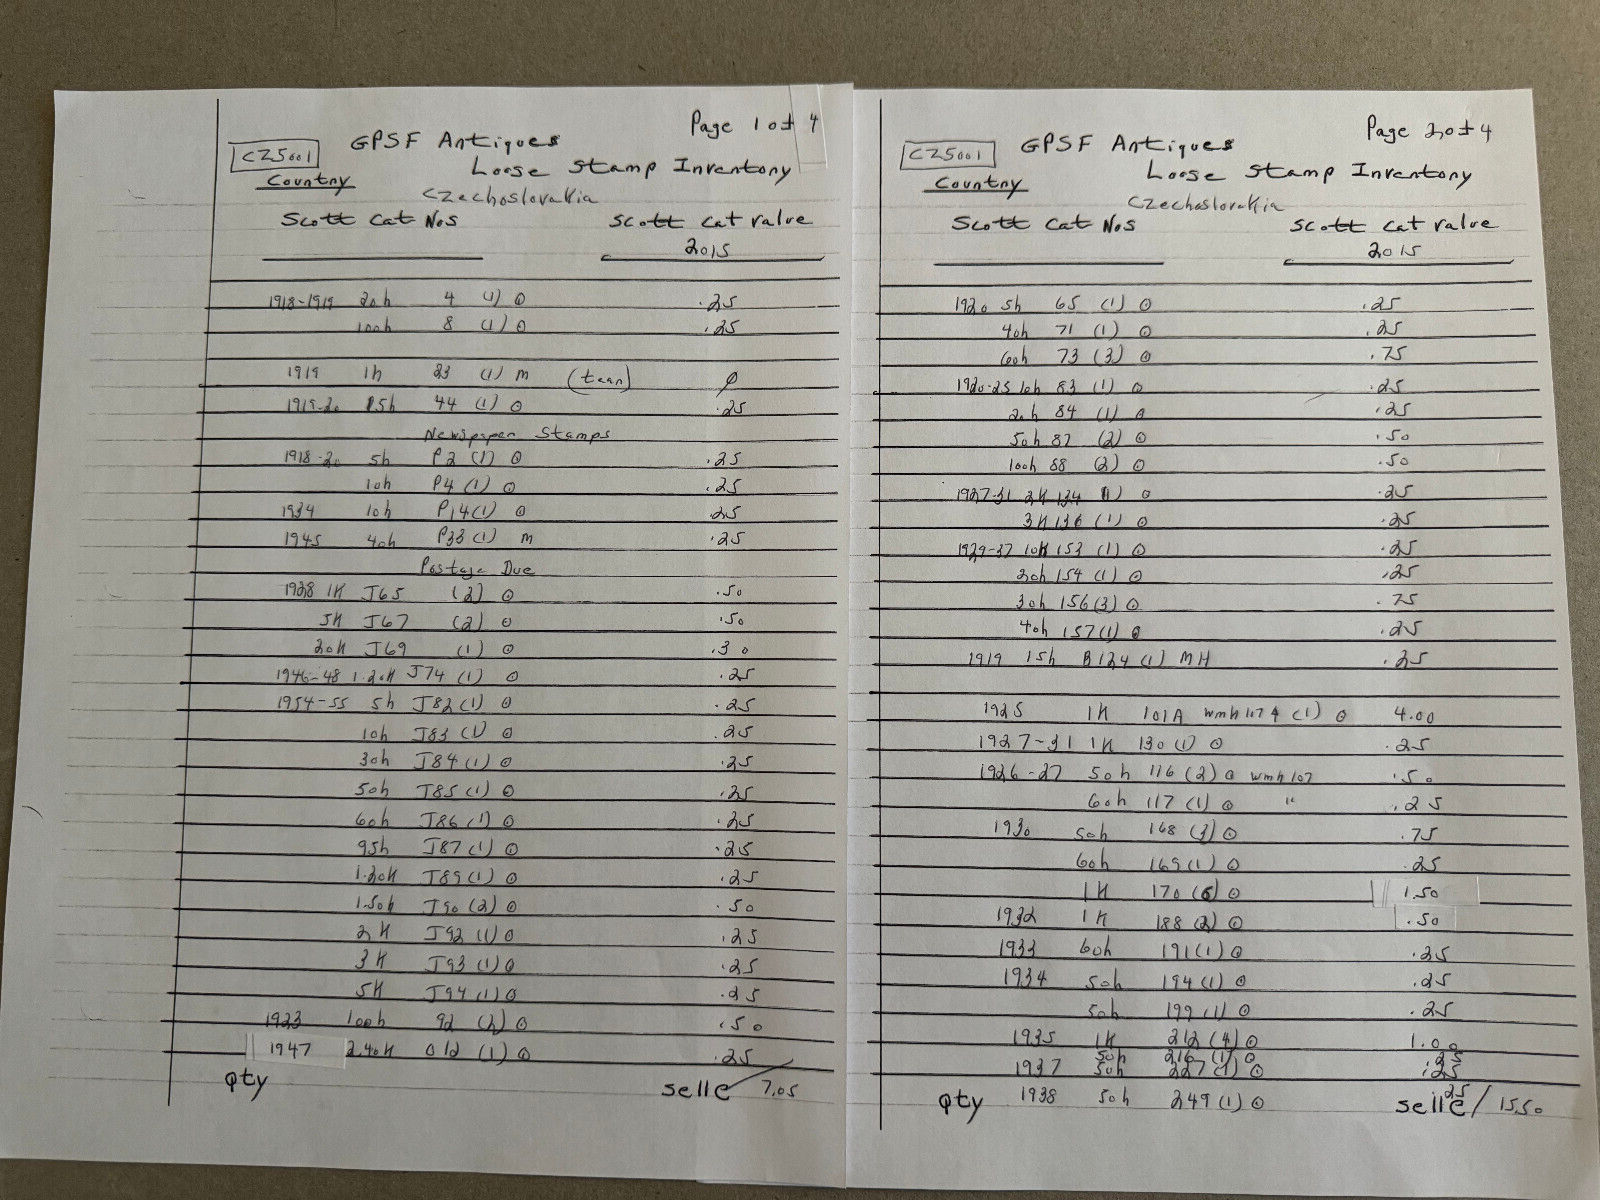 Page 1 of 4
CZ5001 GPSF Antiques
Loose Stamp Inventory
Country
Czechoslovakia
Scott Cat Nos Scott Cat Value
2015
1918-1919 20h 4 (1) ⊙ .25
100h 8 (1) ⊙ .25
1919 1h 23 (1) M (tear) φ
1919-20 15h 44 (1) ⊙ .25
Newspaper Stamps
1918-20 5h P2 (1) ⊙ .25
10h P4 (1) ⊙ .25
1934 10h P14 (1) ⊙ .25
1945 40h P33 (1) M .25
Postage Due
1928 1K J65 (2) ⊙ .50
5K J67 (2) ⊙ .50
20K J69 (1) ⊙ .30
1946-48 1.20K J74 (1) ⊙ .25
1954-55 5h J82 (1) ⊙ .25
10h J83 (1) ⊙ .25
30h J84 (1) ⊙ .25
50h J85 (1) ⊙ .25
60h J86 (1) ⊙ .25
95h J87 (1) ⊙ .25
1.20K J89 (1) ⊙ .25
1.50K J90 (2) ⊙ .50
2K J92 (1) ⊙ .25
3K J93 (1) ⊙ .25
5K J94 (1) ⊙ .25
1923 100h 92 (2) ⊙ .50
1947 2.40K O12 (1) ⊙ .25
Qty selle 7.05
Page 2 of 4
CZ5001 GPSF Antiques
Loose Stamp Inventory
Country
Czechoslovakia
Scott Cat Nos Scott Cat Value
2015
1920 5h 65 (1) ⊙ .25
40h 71 (1) ⊙ .25
60h 73 (3) ⊙ .75
1920-25 10h 83 (1) ⊙ .25
20h 84 (1) ⊙ .25
50h 87 (2) ⊙ .50
100h 88 (2) ⊙ .50
1927-31 2K 134 (1) ⊙ .25
3K 136 (1) ⊙ .25
1929-37 10h 153 (1) ⊙ .25
20h 154 (1) ⊙ .25
30h 156 (3) ⊙ .75
40h 157 (1) ⊙ .25
1919 15h B124 (1) MH .25
1925 1K 101A wmk 107 (1) ⊙ 4.00
1927-31 1K 130 (1) ⊙ .25
1926-27 50h 116 (2) ⊙ wmk 107 .50
60h 117 (1) ⊙ " .25
1930 50h 168 (3) ⊙ .75
60h 169 (1) ⊙ .25
1K 170 (6) ⊙ 1.50
1932 1K 188 (2) ⊙ .50
1933 60h 191 (1) ⊙ .25
1934 50h 194 (1) ⊙ .25
50h 199 (1) ⊙ .25
1935 1K 212 (4) ⊙ 1.00
50h 216 (1) ⊙ .25
1937 50h 227 (1) ⊙ .25
Qty 1938 50h 249 (1) ⊙ .25
selle / 15.50